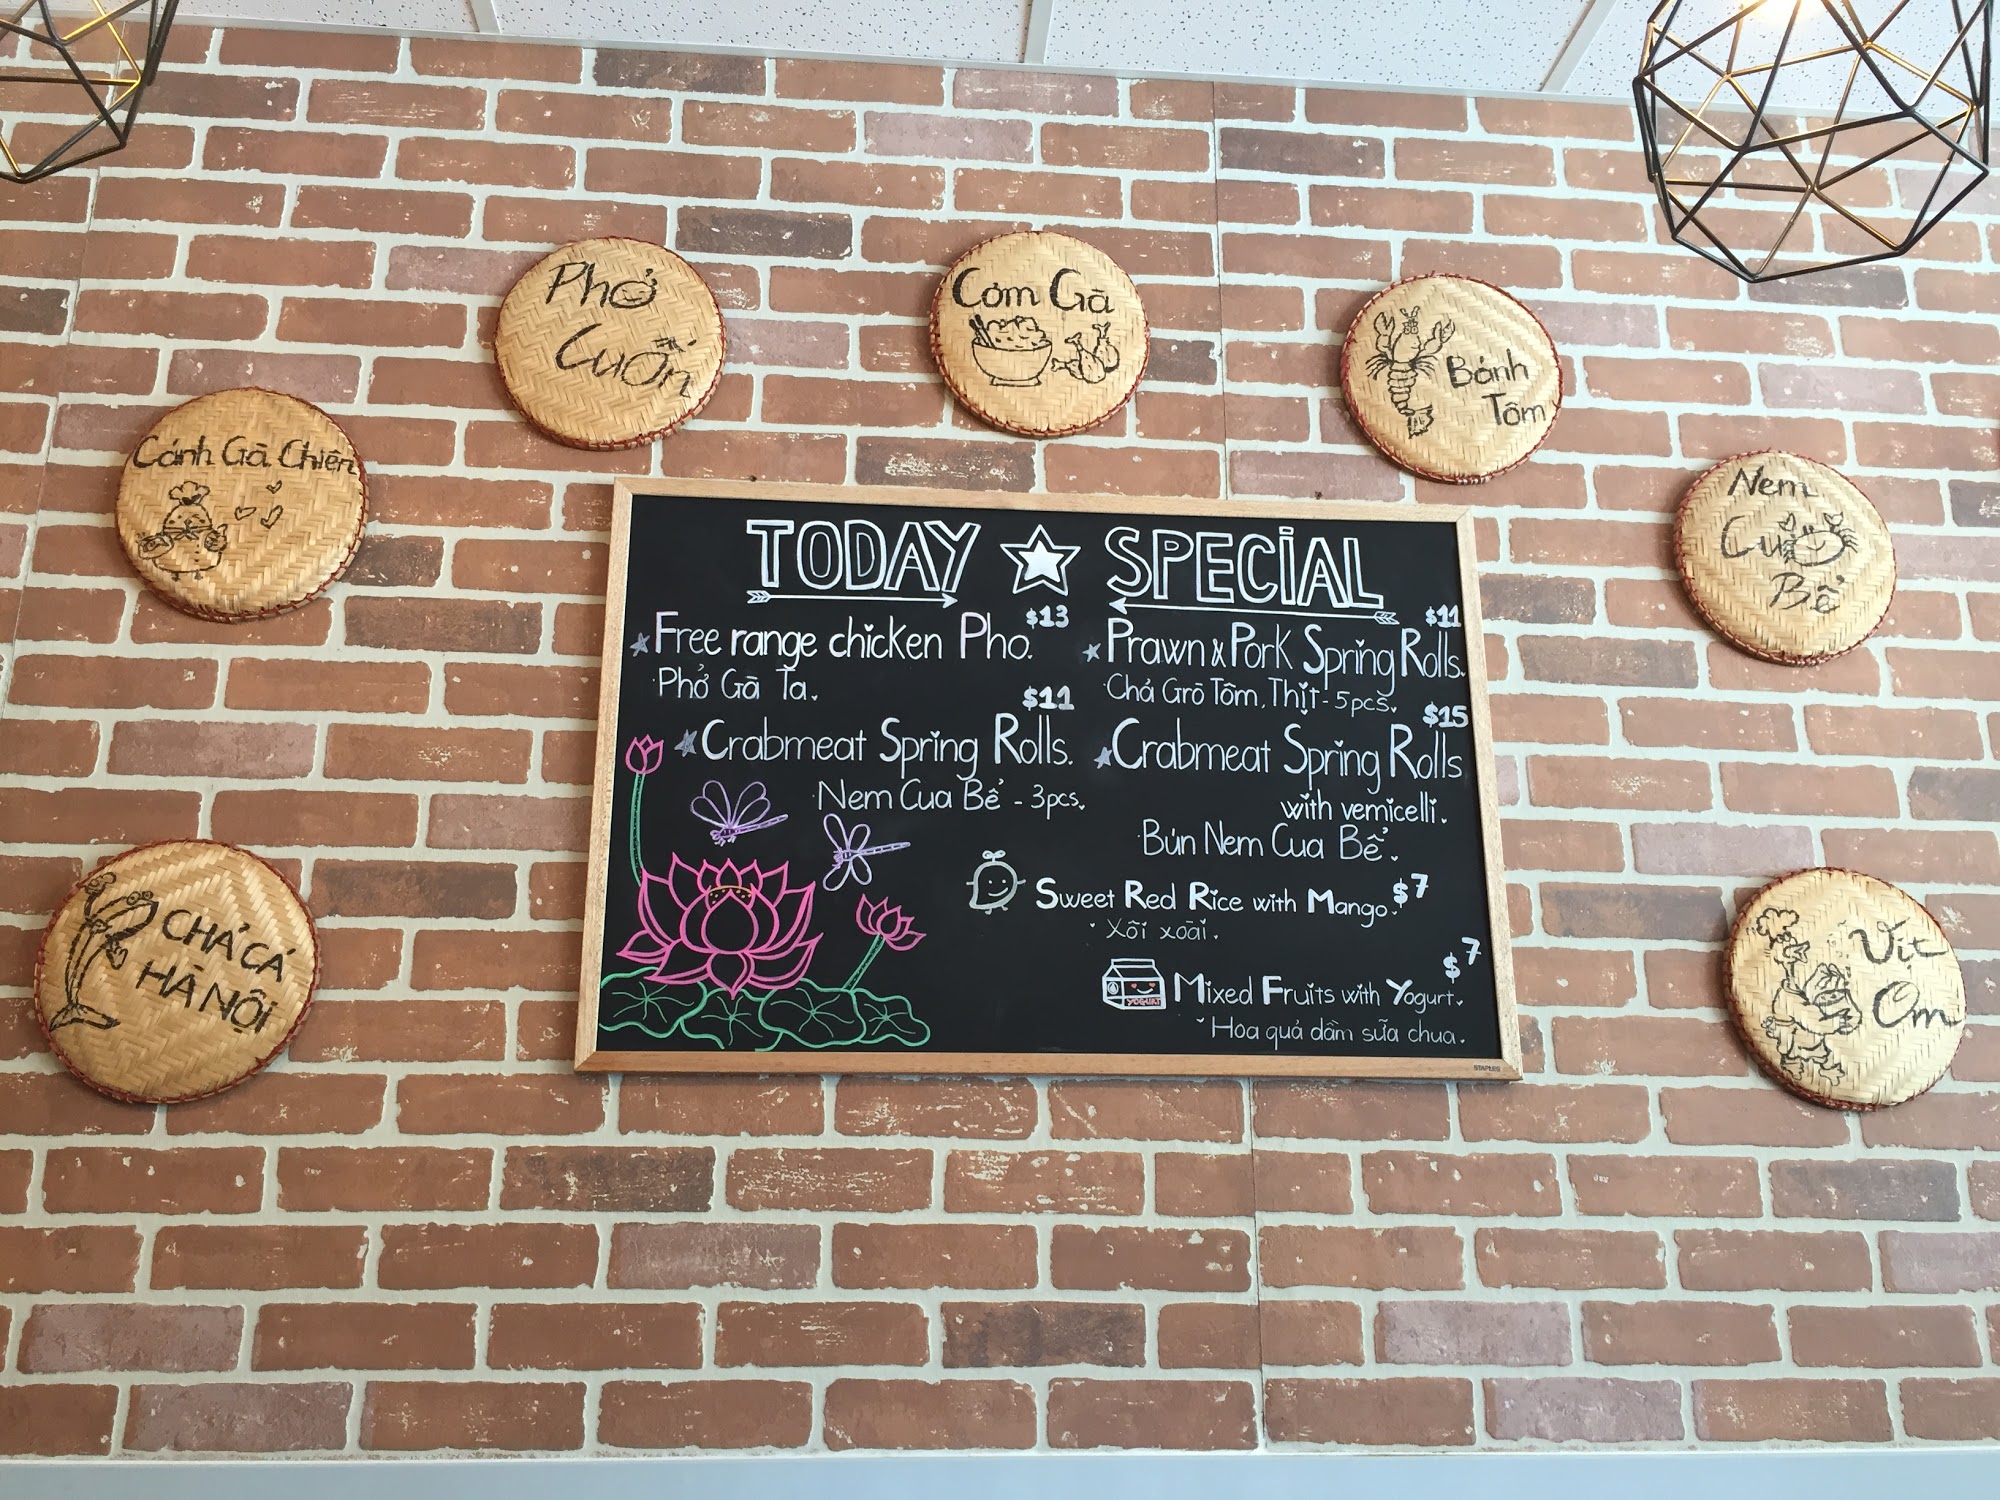 Phở
Cuốn
Cơm Gà
Bánh
Tôm
Cánh Gà Chiên
Nem
Cua
Bể
CHẢ CÁ
HÀ NỘI
Vịt
Om
TODAY SPECIAL
$13
Free range chicken Pho.
Phở Gà Ta.
$11
Crabmeat Spring Rolls.
Nem Cua Bể - 3pcs.
$11
Prawn & Pork Spring Rolls.
Chả Giò Tôm, Thịt - 5pcs.
$15
Crabmeat Spring Rolls
with vemicelli.
Bún Nem Cua Bể.
Sweet Red Rice with Mango. $7
Xôi xoài.
$7
YOGURT
Mixed Fruits with Yogurt.
Hoa quả dầm sữa chua.
STAPLES